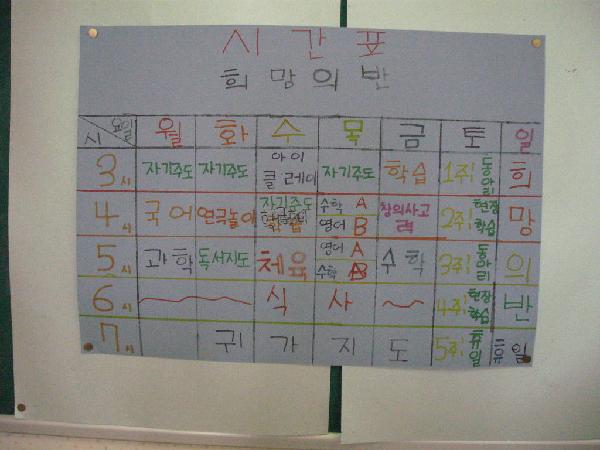 시간표
희망의반
요일
시 월 화 수 목 금 토 일
3시 자기주도 자기주도 아이클레이 자기주도 학습 1주! 동아리 희
4시 국어 연극놀이 자기주도 학습 수학 A 영어 B 창의사고력 2주! 현장학습 망
5시 과학 독서지도 체육 영어 A 수학 B 수학 3주! 동아리 의
6시 식 사 4주! 현장학습 반
7시 귀 가 지 도 5주! 휴일 휴일